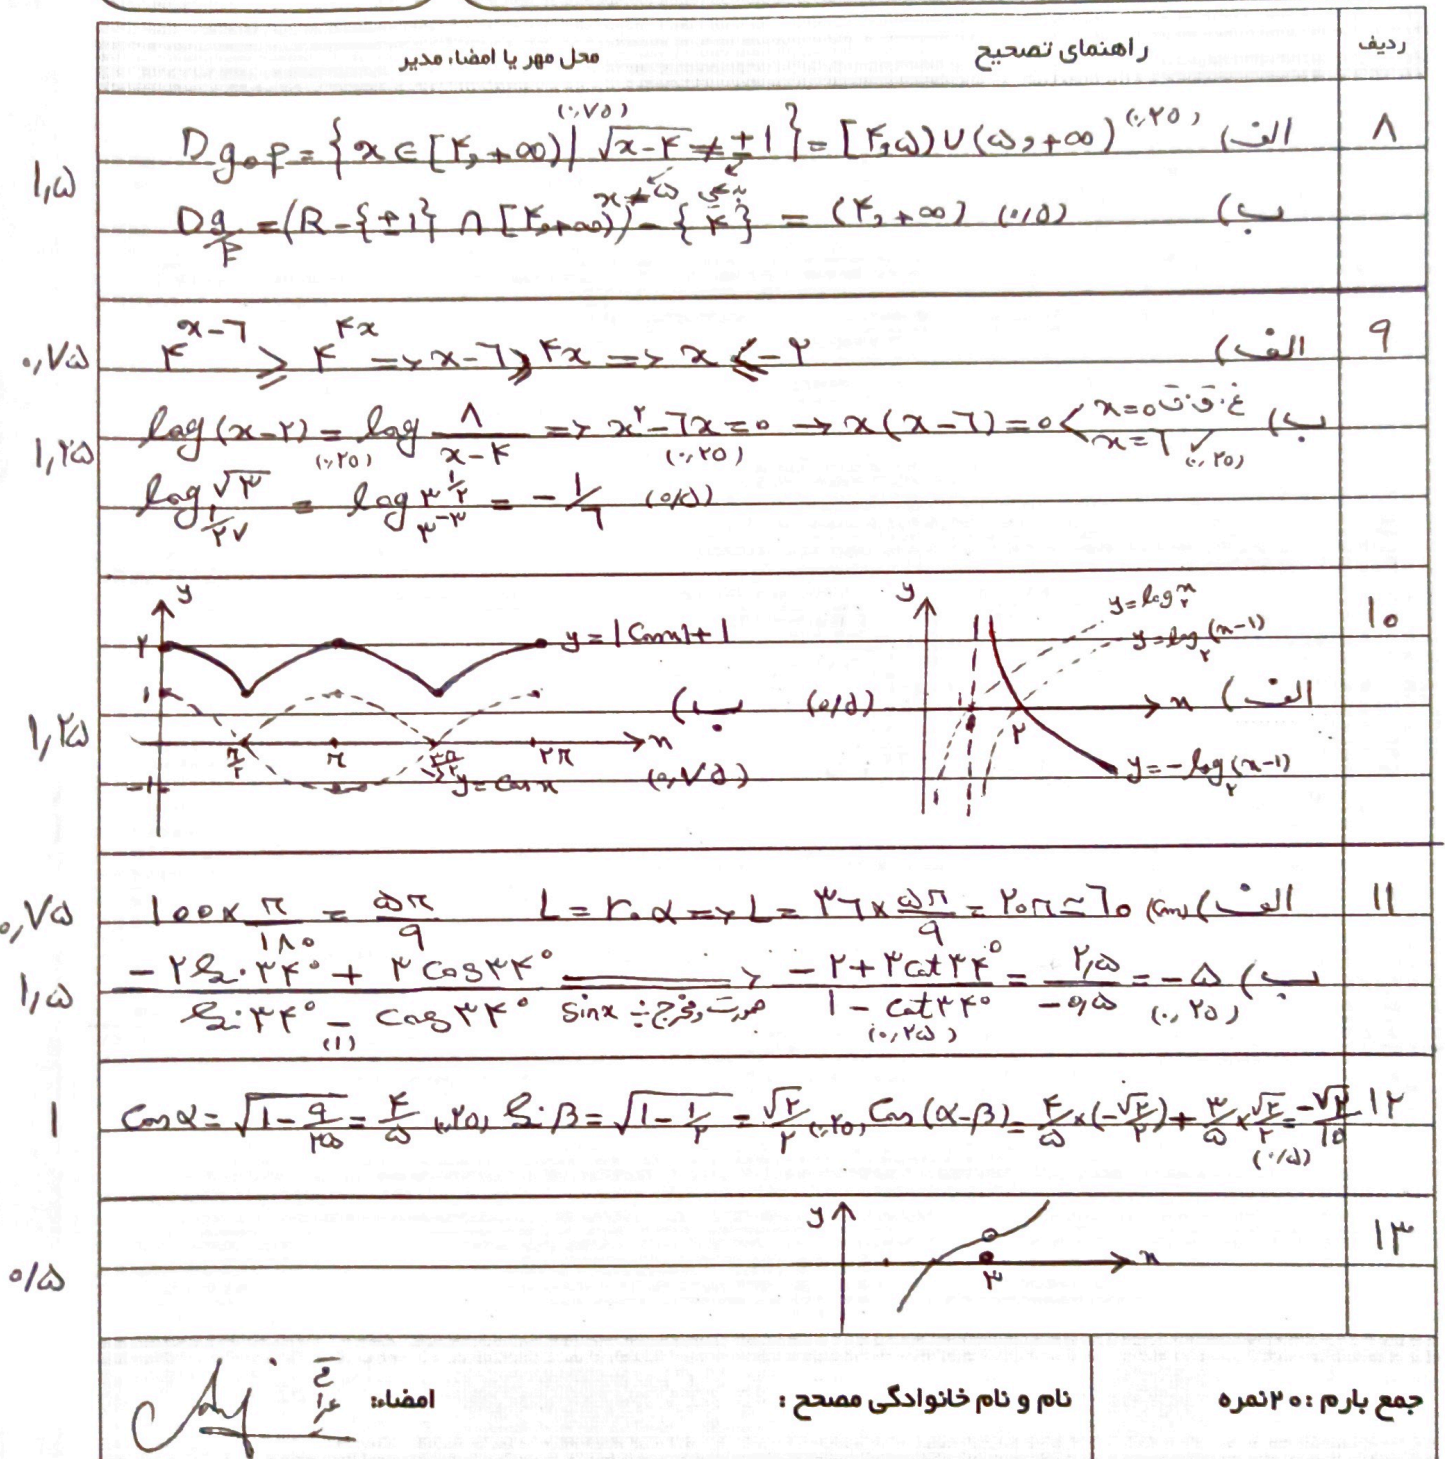 ردیف راهنمای تصحیح محل مهر یا امضاء مدیر
۸ الف) D gof = { x ∈ [۴, +∞) | √(x-۴) ≠ ±1 } = [۴, ۵) ∪ (۵, +∞) (۰,۲۵) (۰,۷۵)
x ≠ ۵ بدیهی
۱,۵
ب) D g/f = (R - {±1} ∩ [۴, +∞)) - {۴} = (۴, +∞) (۰/۵)
۹ الف) ۴^(x-۶) ≥ ۴^(۴x) => x-۶ ≥ ۴x => x ≤ -۲ ۰,۷۵
ب) log(x-۲) = log ۸/(x-۴) => x^۲-۶x=۰ → x(x-۶)=۰ < x=۰ غ.ق.ق x=۶ ✓ (۰,۲۵)
(۰,۲۵) (۰,۲۵)
۱,۲۵
log √۳ ۱/۲۷ = log ۳^(۱/۲) ۳^(-۳) = -۱/۶ (۰/۵)
۱۰ الف) (۰/۵)
y = log x ۲
y = log (x-1) ۲
y = -log (x-1) ۲
y x ۱ ۲
ب) (۰,۷۵)
y = |Cosx| + 1
y = Cosx
y ۲ ۱ -۱ π/۲ π ۳π/۲ ۲π x
۱,۲۵
۱۱ الف) ۱۰۰ × π/۱۸۰ = ۵π/۹ L = r.α => L = ۳۶ × ۵π/۹ = ۲۰π ≃ ۶۰ (cm) ۰,۷۵
ب) (-۲ Sin ۳۴° + ۳ Cos ۳۴°)/(Sin ۳۴° - Cos ۳۴°) صورت و مخرج ÷ sinx => (-۲+۳ Cot ۳۴°)/(۱ - Cot ۳۴°) = ۲,۵/-۰,۵ = -۵ ۱,۵
(۱) (۰,۲۵) (۰,۲۵)
۱۲ Cos α = √(۱-۹/۲۵) = ۴/۵ (۰,۲۵) Sin β = √(۱-۱/۲) = √۲/۲ (۰,۲۵) Cos(α-β) = ۴/۵ × (-√۲/۲) + ۳/۵ × √۲/۲ = -√۲/۱۰ (۰/۵) ۱
۱۳ y x ۳ ۰/۵
جمع بارم : ۲۰ نمره نام و نام خانوادگی مصحح : امضاء: